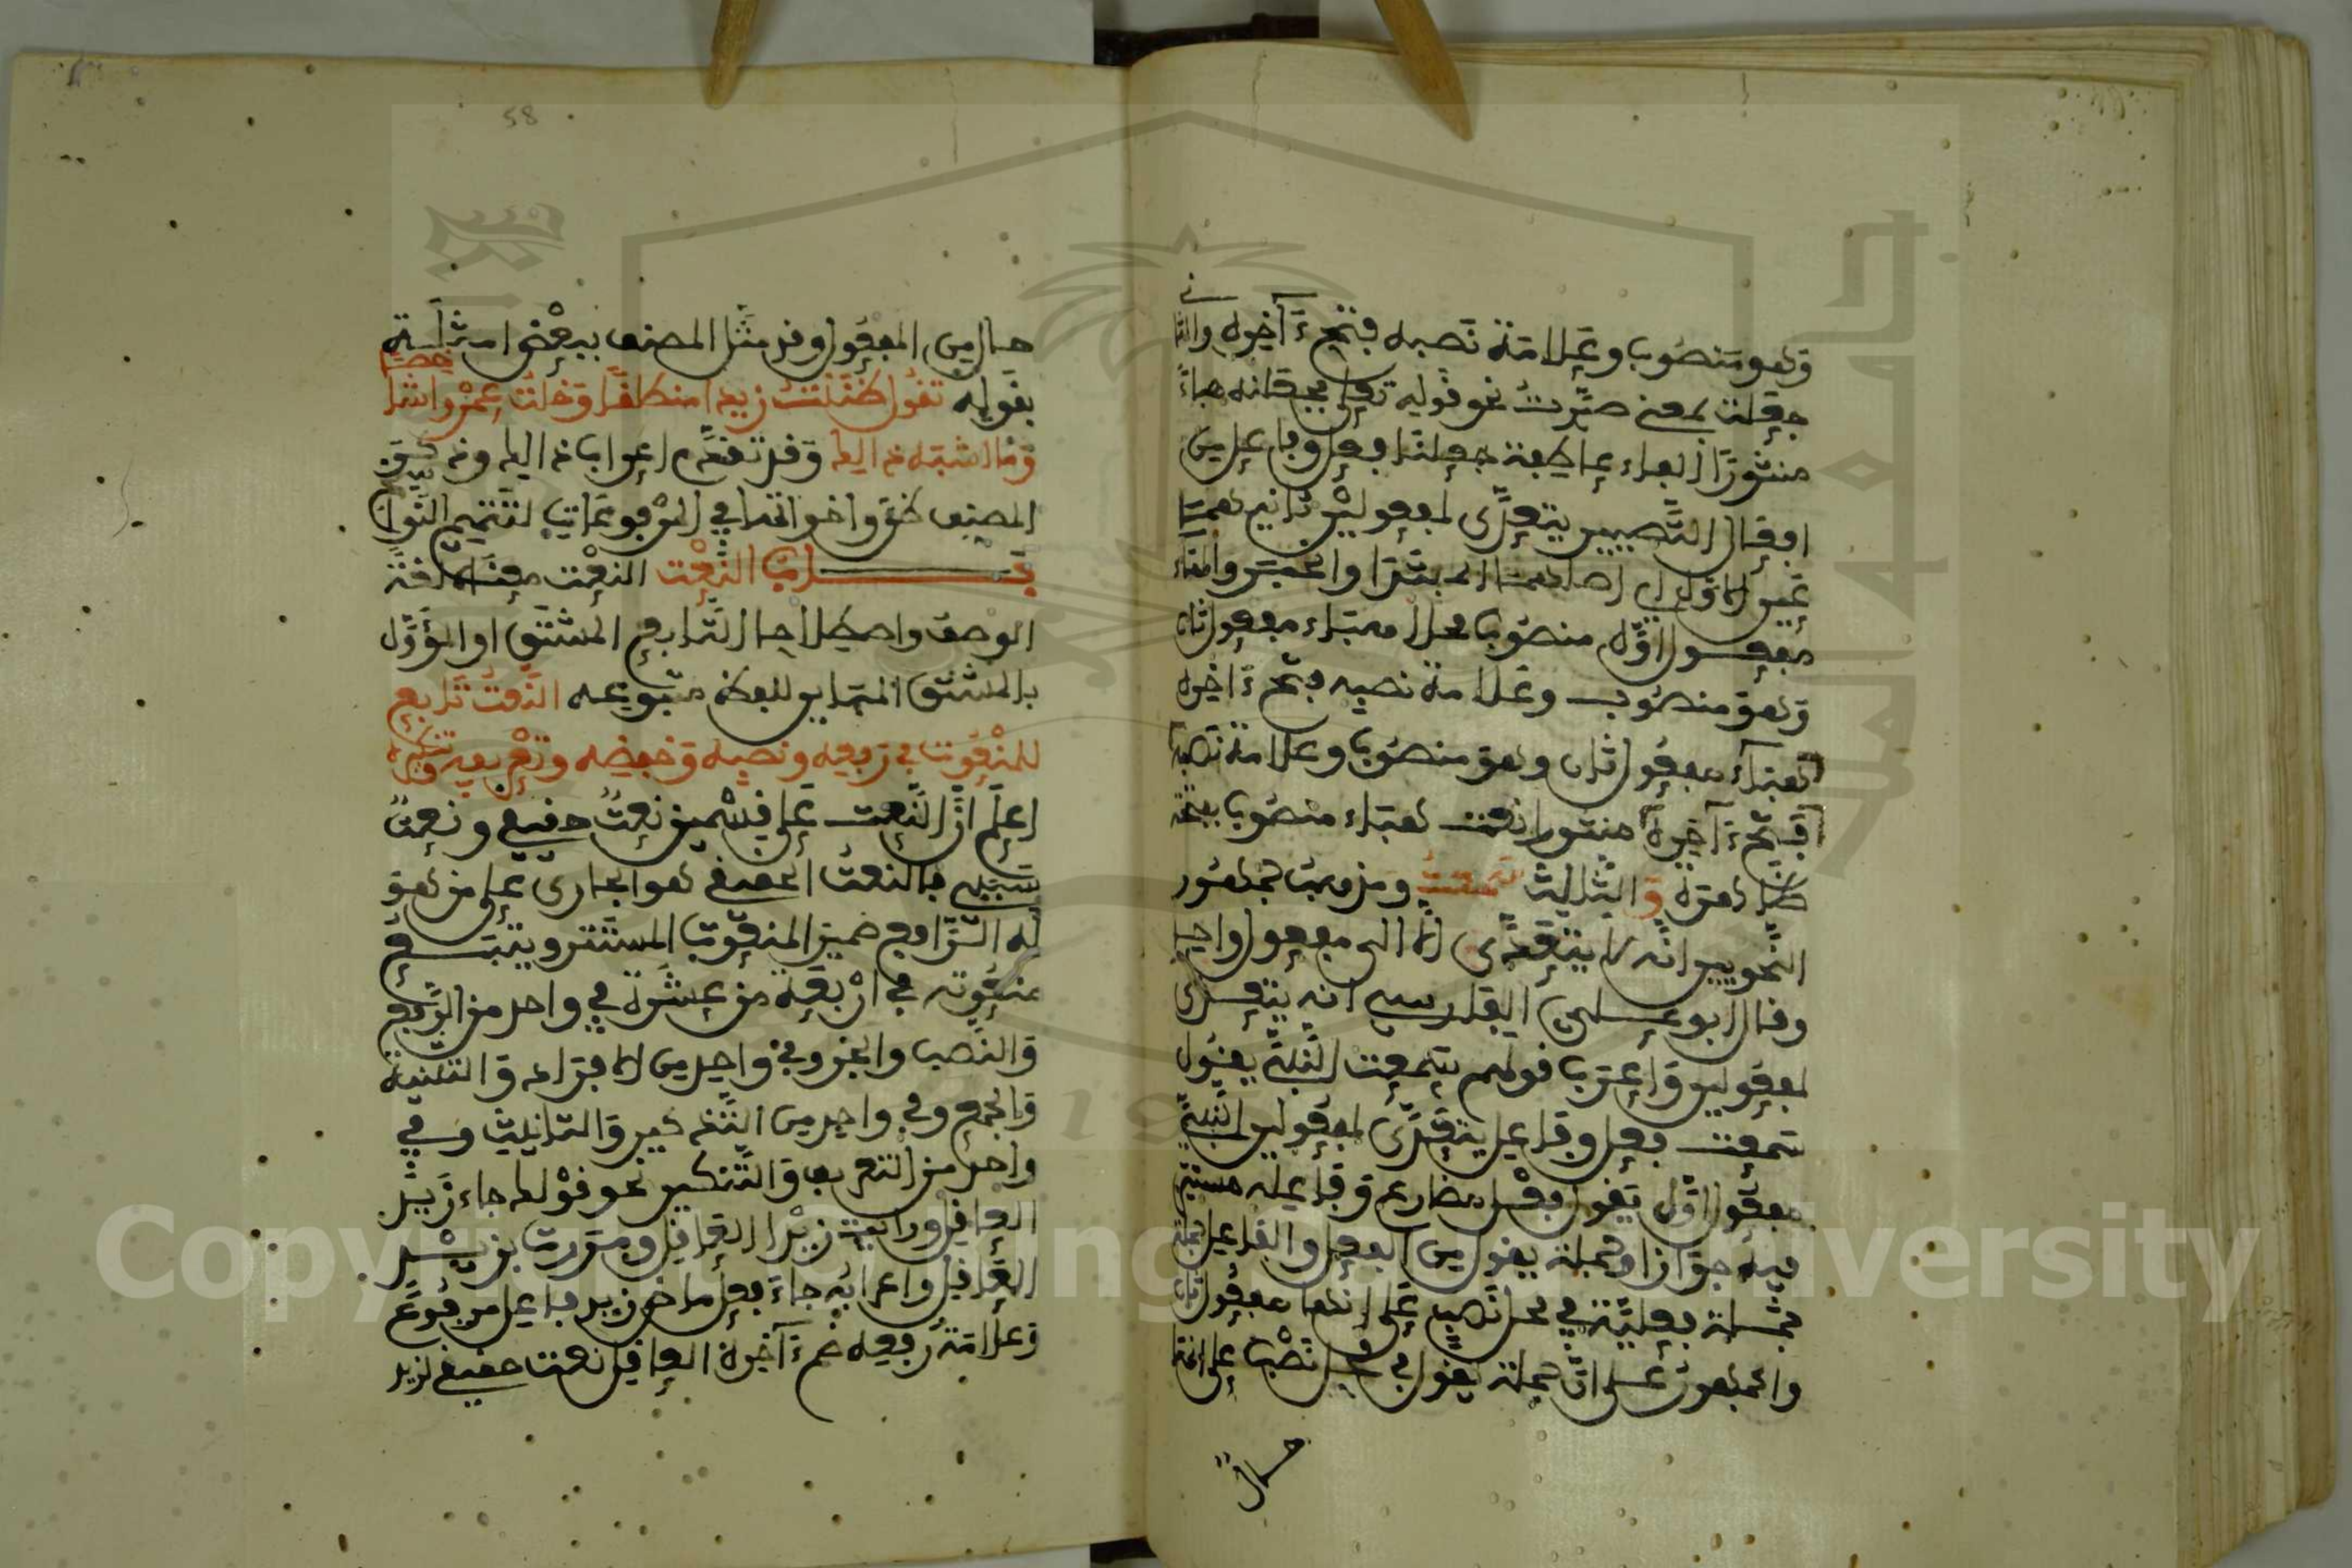 وهو منصوب وعلامة نصبه فتح ءاخره والثا
ني
جعلت بمعنى صيرت نحو قوله تعلى فجعلناه هباء
منثورا العاء عاطفة جعلنا فعل وفاعل من
افعال التصيير يتعدى لمفعولين ثانيهما
غير الاول اصلهما المبتدا والخبر والهاء
مفعول اول منصوب محلا هباء مفعول ثان
وهو منصوب وعلامة نصبه فتح ءاخره
هباء مفعول ثان وهو منصوب وعلامة نصبه
فتح ءاخره منثورا نعت هباء منصوب بفتحة
ظاهرة والثالث سمعت ومذهب جمهور
النحويين انه لا يتعدى الا الى مفعول واحد
وقال ابو علي الفارسي انه يتعدى
لمفعولين واعرب قولهم سمعت النبي يقول
سمعت فعل وفاعل يتعدى لمفعولين النبي
مفعول اول يقول فعل مضارع وفاعله مستتر
فيه جوازا وجملة يقول من الفعل والفاعل
جملة فعلية في محل نصب على انها مفعول ثان
والجمهور على ان جملة يقول في محل نصب على انها
حال
58
حال من المفعول وقد مثل المصنف ببعض امثلة
بقوله تقول ظننت زيدا منطلقا وخلت عمرا شاخصا
وما اشبه ذالك وقد تقدم اعراب ذالك وذكر
المصنف ظن واخواتها في المرفوعات لتتميم النواسخ
باب النعت النعت معناه لغة
الوصف واصطلاحا التابع المشتق او المؤول
بالمشتق المباين للفظ متبوعه النعت تابع
للمنعوت في رفعه ونصبه وخفضه وتعريفه وتنكيره
اعلم ان النعت على قسمين نعت حقيقي ونعت
سببي فالنعت الحقيقي هو الجاري على من هو
له الرافع ضمير المنعوت المستتر ويتبع
منعوته في اربعة من عشرة في واحد من الرفع
والنصب والجر وفي واحد من الافراد والتثنية
والجمع وفي واحد من التذكير والتانيث وفي
واحد من التعريف والتنكير نحو قولك جاء زيد
العاقل ورايت زيدا العاقل ومررت بزيد
العاقل واعرابه جاء فعل ماض زيد فاعل مرفوع
وعلامة رفعه ضم ءاخره العاقل نعت حقيقي لزيد
Copyright © King Saud University